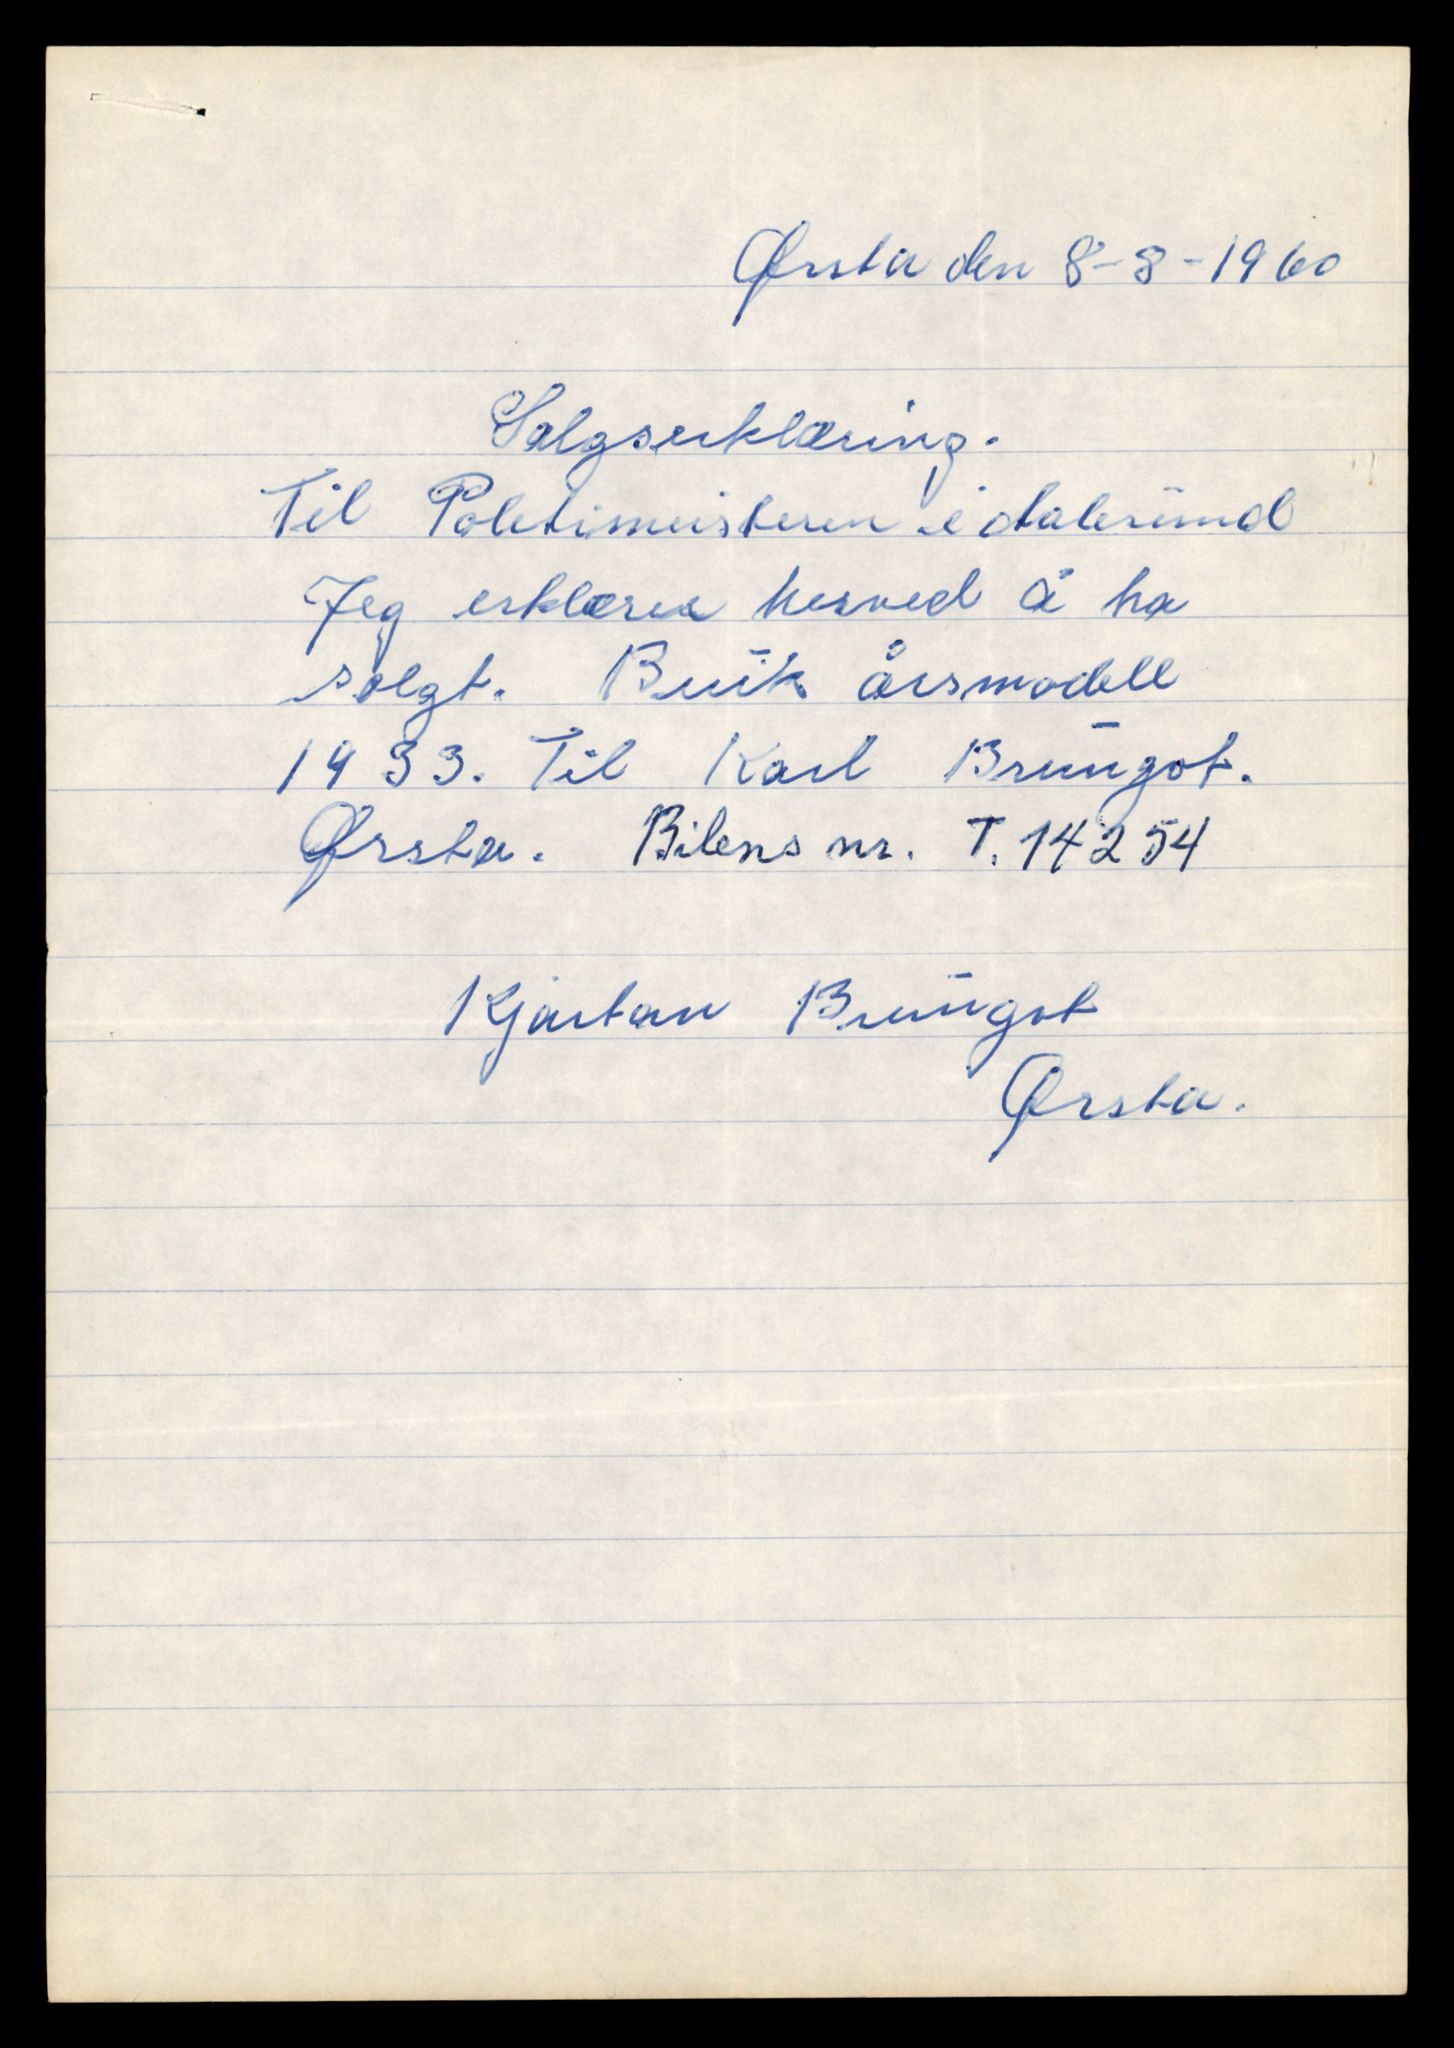 Ørsta den 8-8-1960
Salgserklæring.
Til Politimeisteren i Ålesund
Jeg erklærer herved å ha
solgt. Buik årsmodell
1933. Til Karl Brungot.
Ørsta. Bilens nr. T. 14254
Kjartan Brungot
Ørsta.